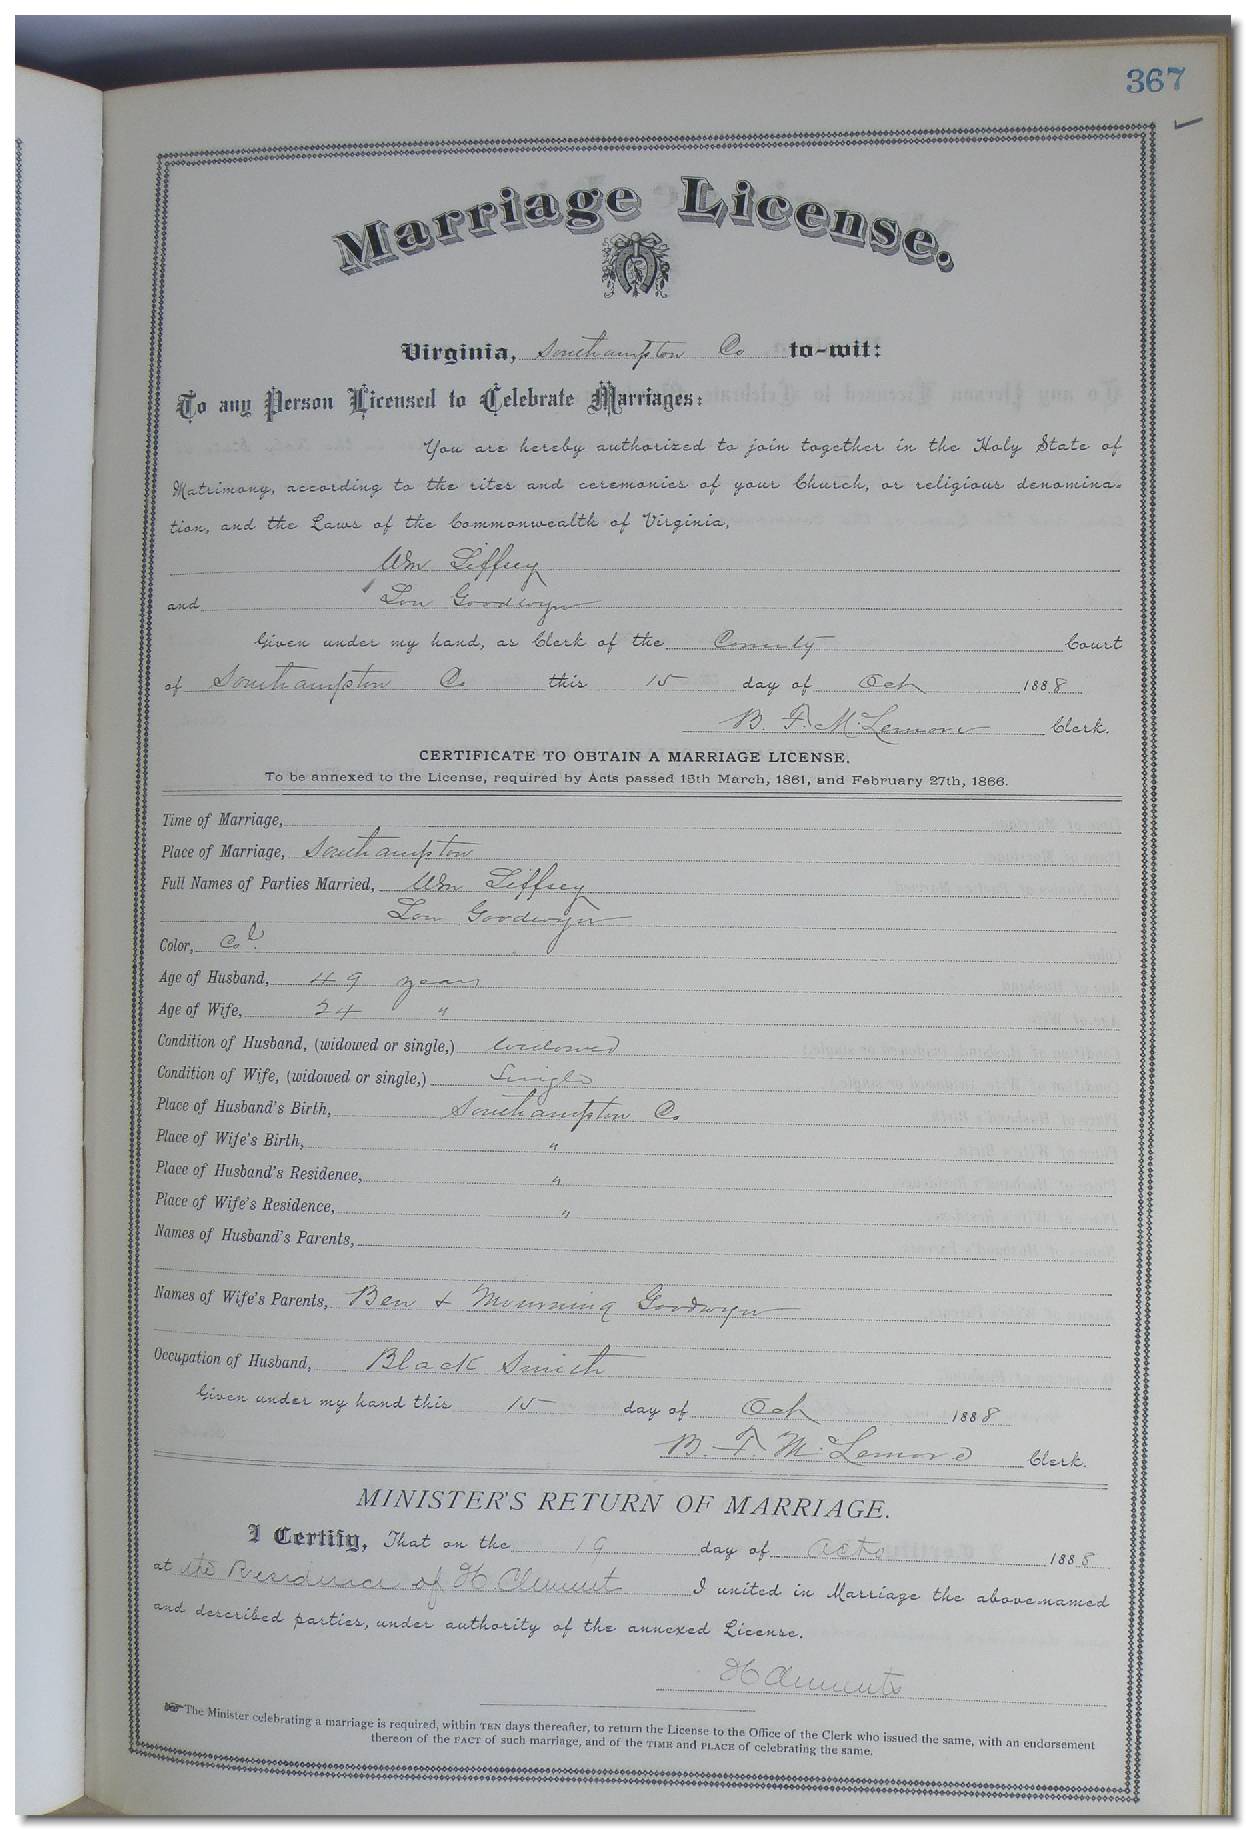 367
Marriage License.
Virginia, Southampton Co to-wit:
To any Person Licensed to Celebrate Marriages:
You are hereby authorized to join together in the Holy State of
Matrimony, according to the rites and ceremonies of your Church, or religious denomina-
tion, and the Laws of the Commonwealth of Virginia,
Wm Liffsey
and Lou Goodwyn
Given under my hand, as Clerk of the County Court
of Southampton Co this 15 day of Oct 1888
B. F. McLemore Clerk.
CERTIFICATE TO OBTAIN A MARRIAGE LICENSE.
To be annexed to the License, required by Acts passed 15th March, 1861, and February 27th, 1866.
Time of Marriage,
Place of Marriage, Southampton
Full Names of Parties Married, Wm Liffsey
Lou Goodwyn
Color, Col.
Age of Husband, 49 years
Age of Wife, 24 "
Condition of Husband, (widowed or single,) widowed
Condition of Wife, (widowed or single,) Single
Place of Husband's Birth, Southampton Co
Place of Wife's Birth, "
Place of Husband's Residence, "
Place of Wife's Residence, "
Names of Husband's Parents,
Names of Wife's Parents, Ben & Mourning Goodwyn
Occupation of Husband, Black Smith
Given under my hand this 15 day of Oct 1888
B. F. McLemore Clerk.
MINISTER'S RETURN OF MARRIAGE.
I Certify, That on the 19 day of 1888
at Residence of H Clement I united in Marriage the above-named
and described parties, under authority of the annexed License.
H Clements
The Minister celebrating a marriage is required, within TEN days thereafter, to return the License to the Office of the Clerk who issued the same, with an endorsement
thereon of the FACT of such marriage, and of the TIME and PLACE of celebrating the same.